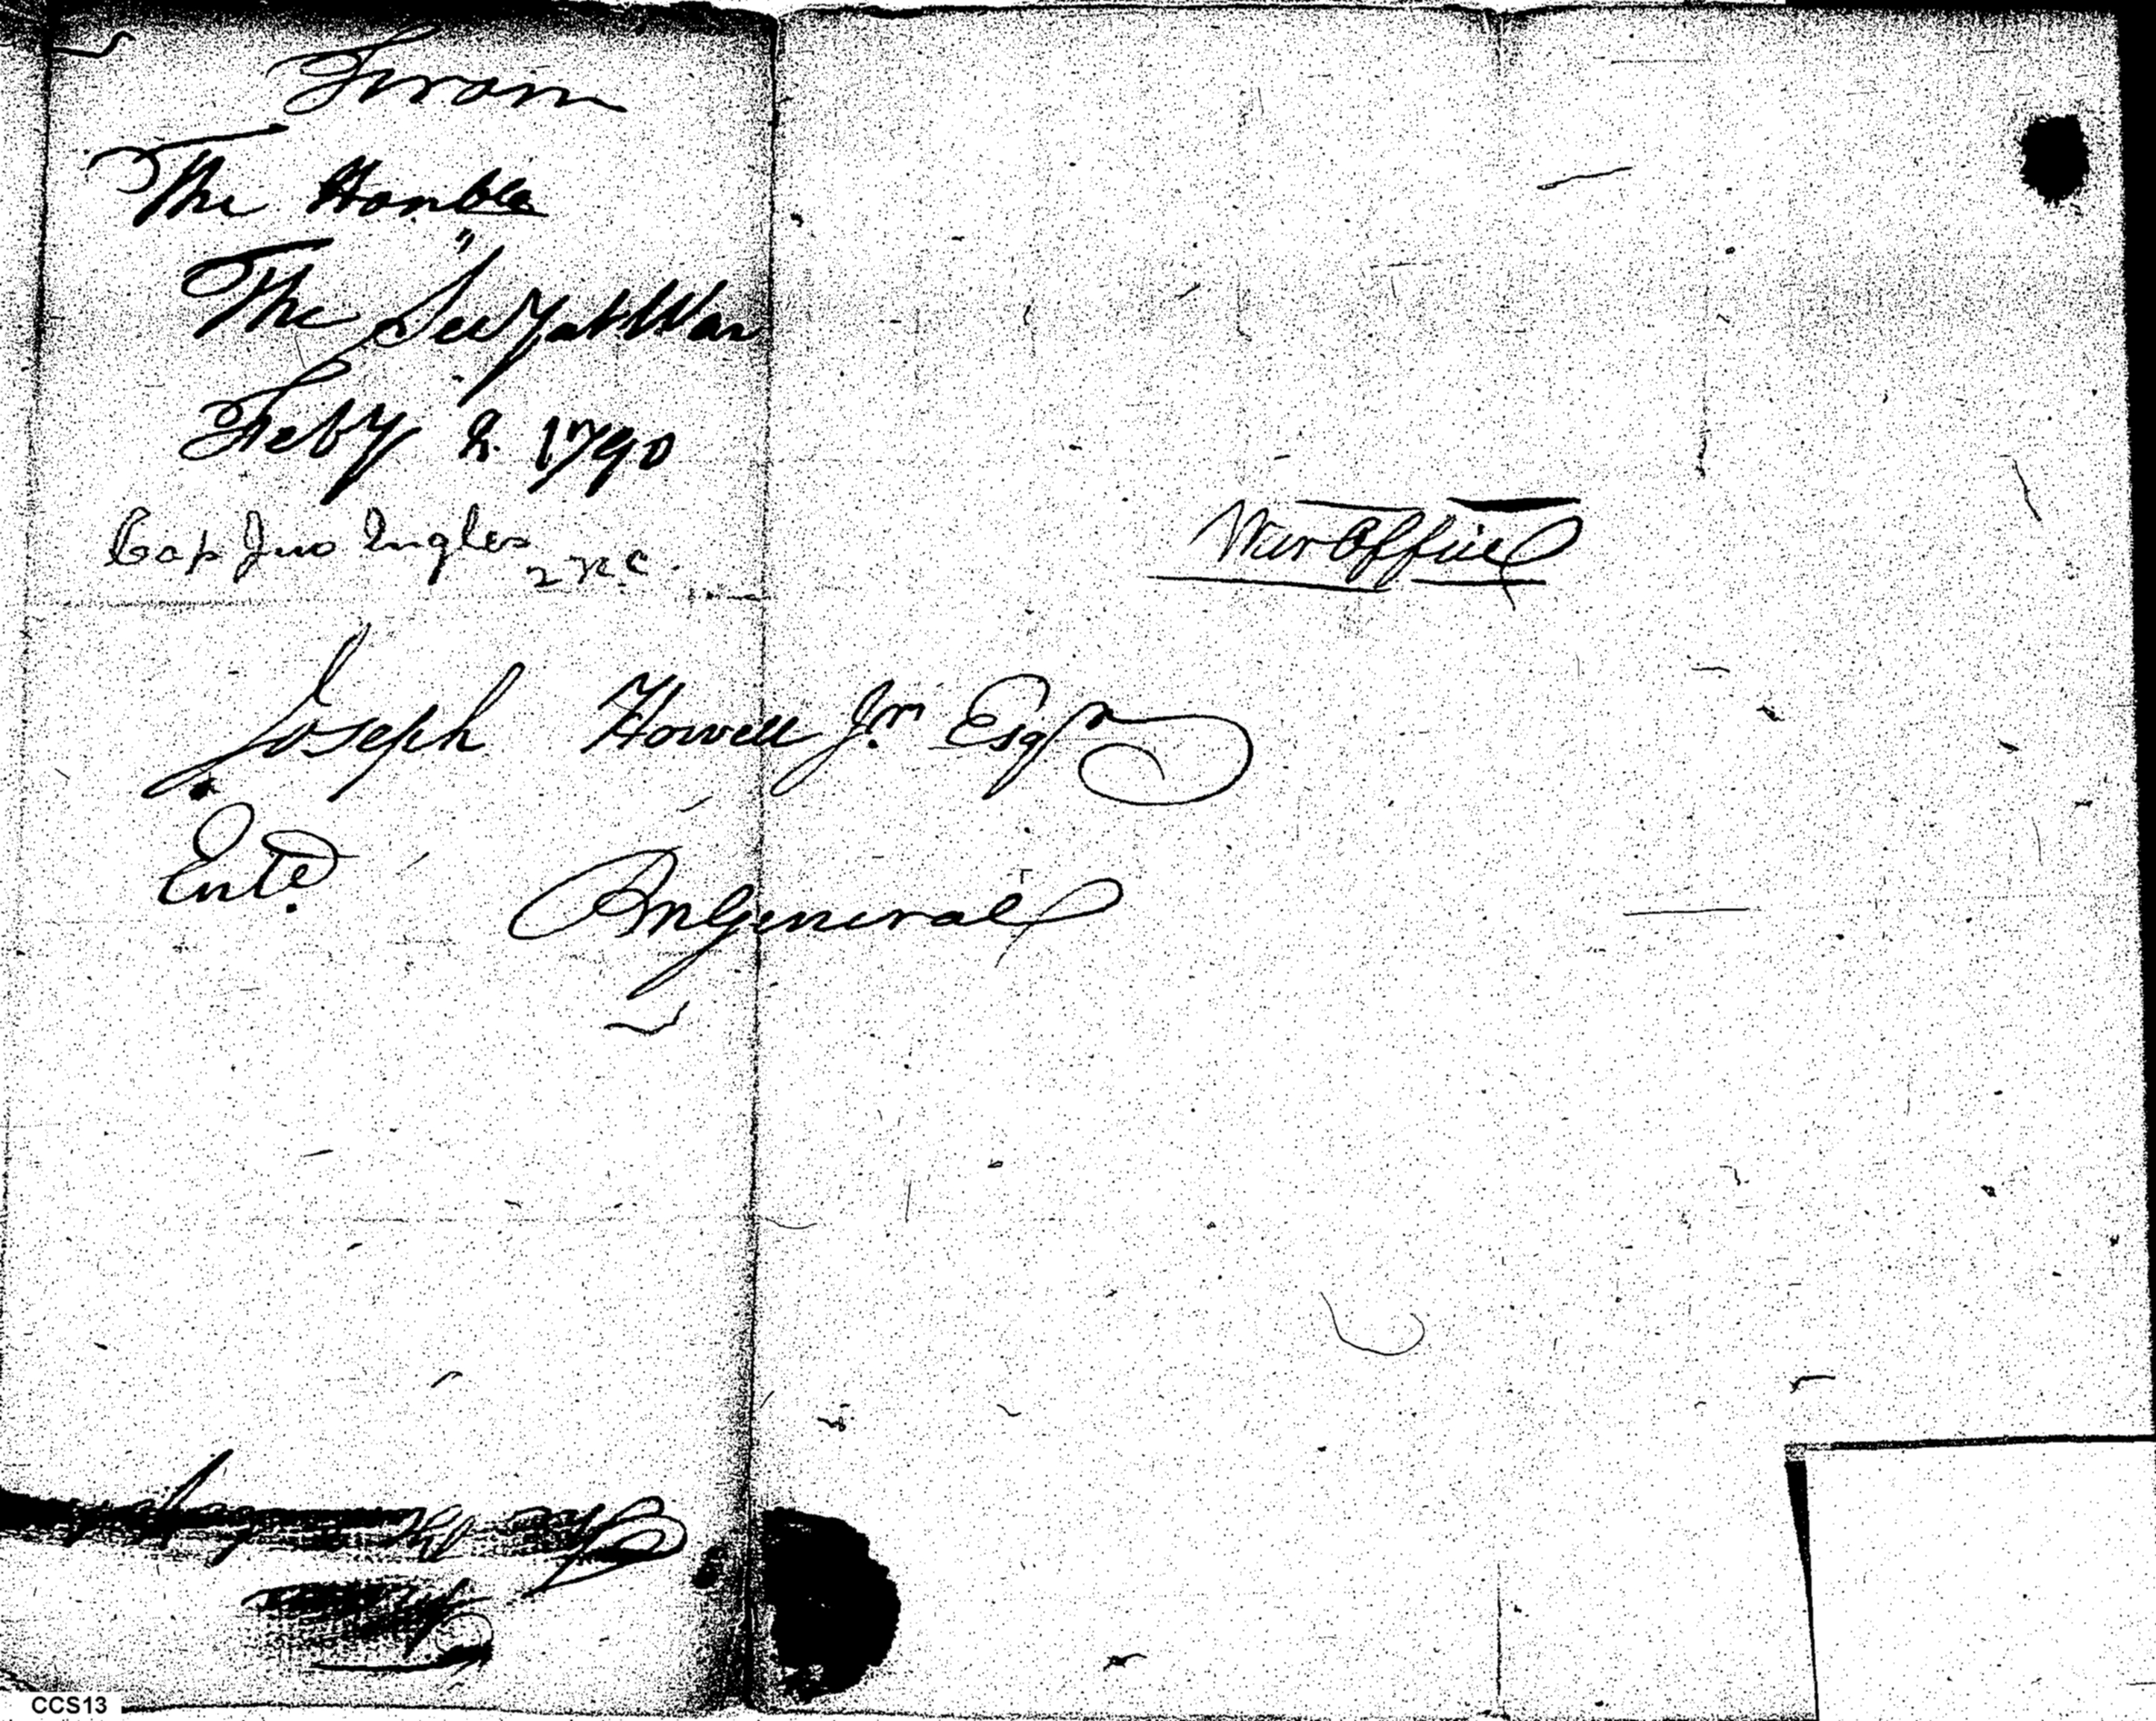 From
The Honble
The Secy at War
Feby 2. 1790
Cap Jno Ingles
2 N.C.
War Office
Joseph Howell Jnr Esqr
Entd.
PM General
CCS13